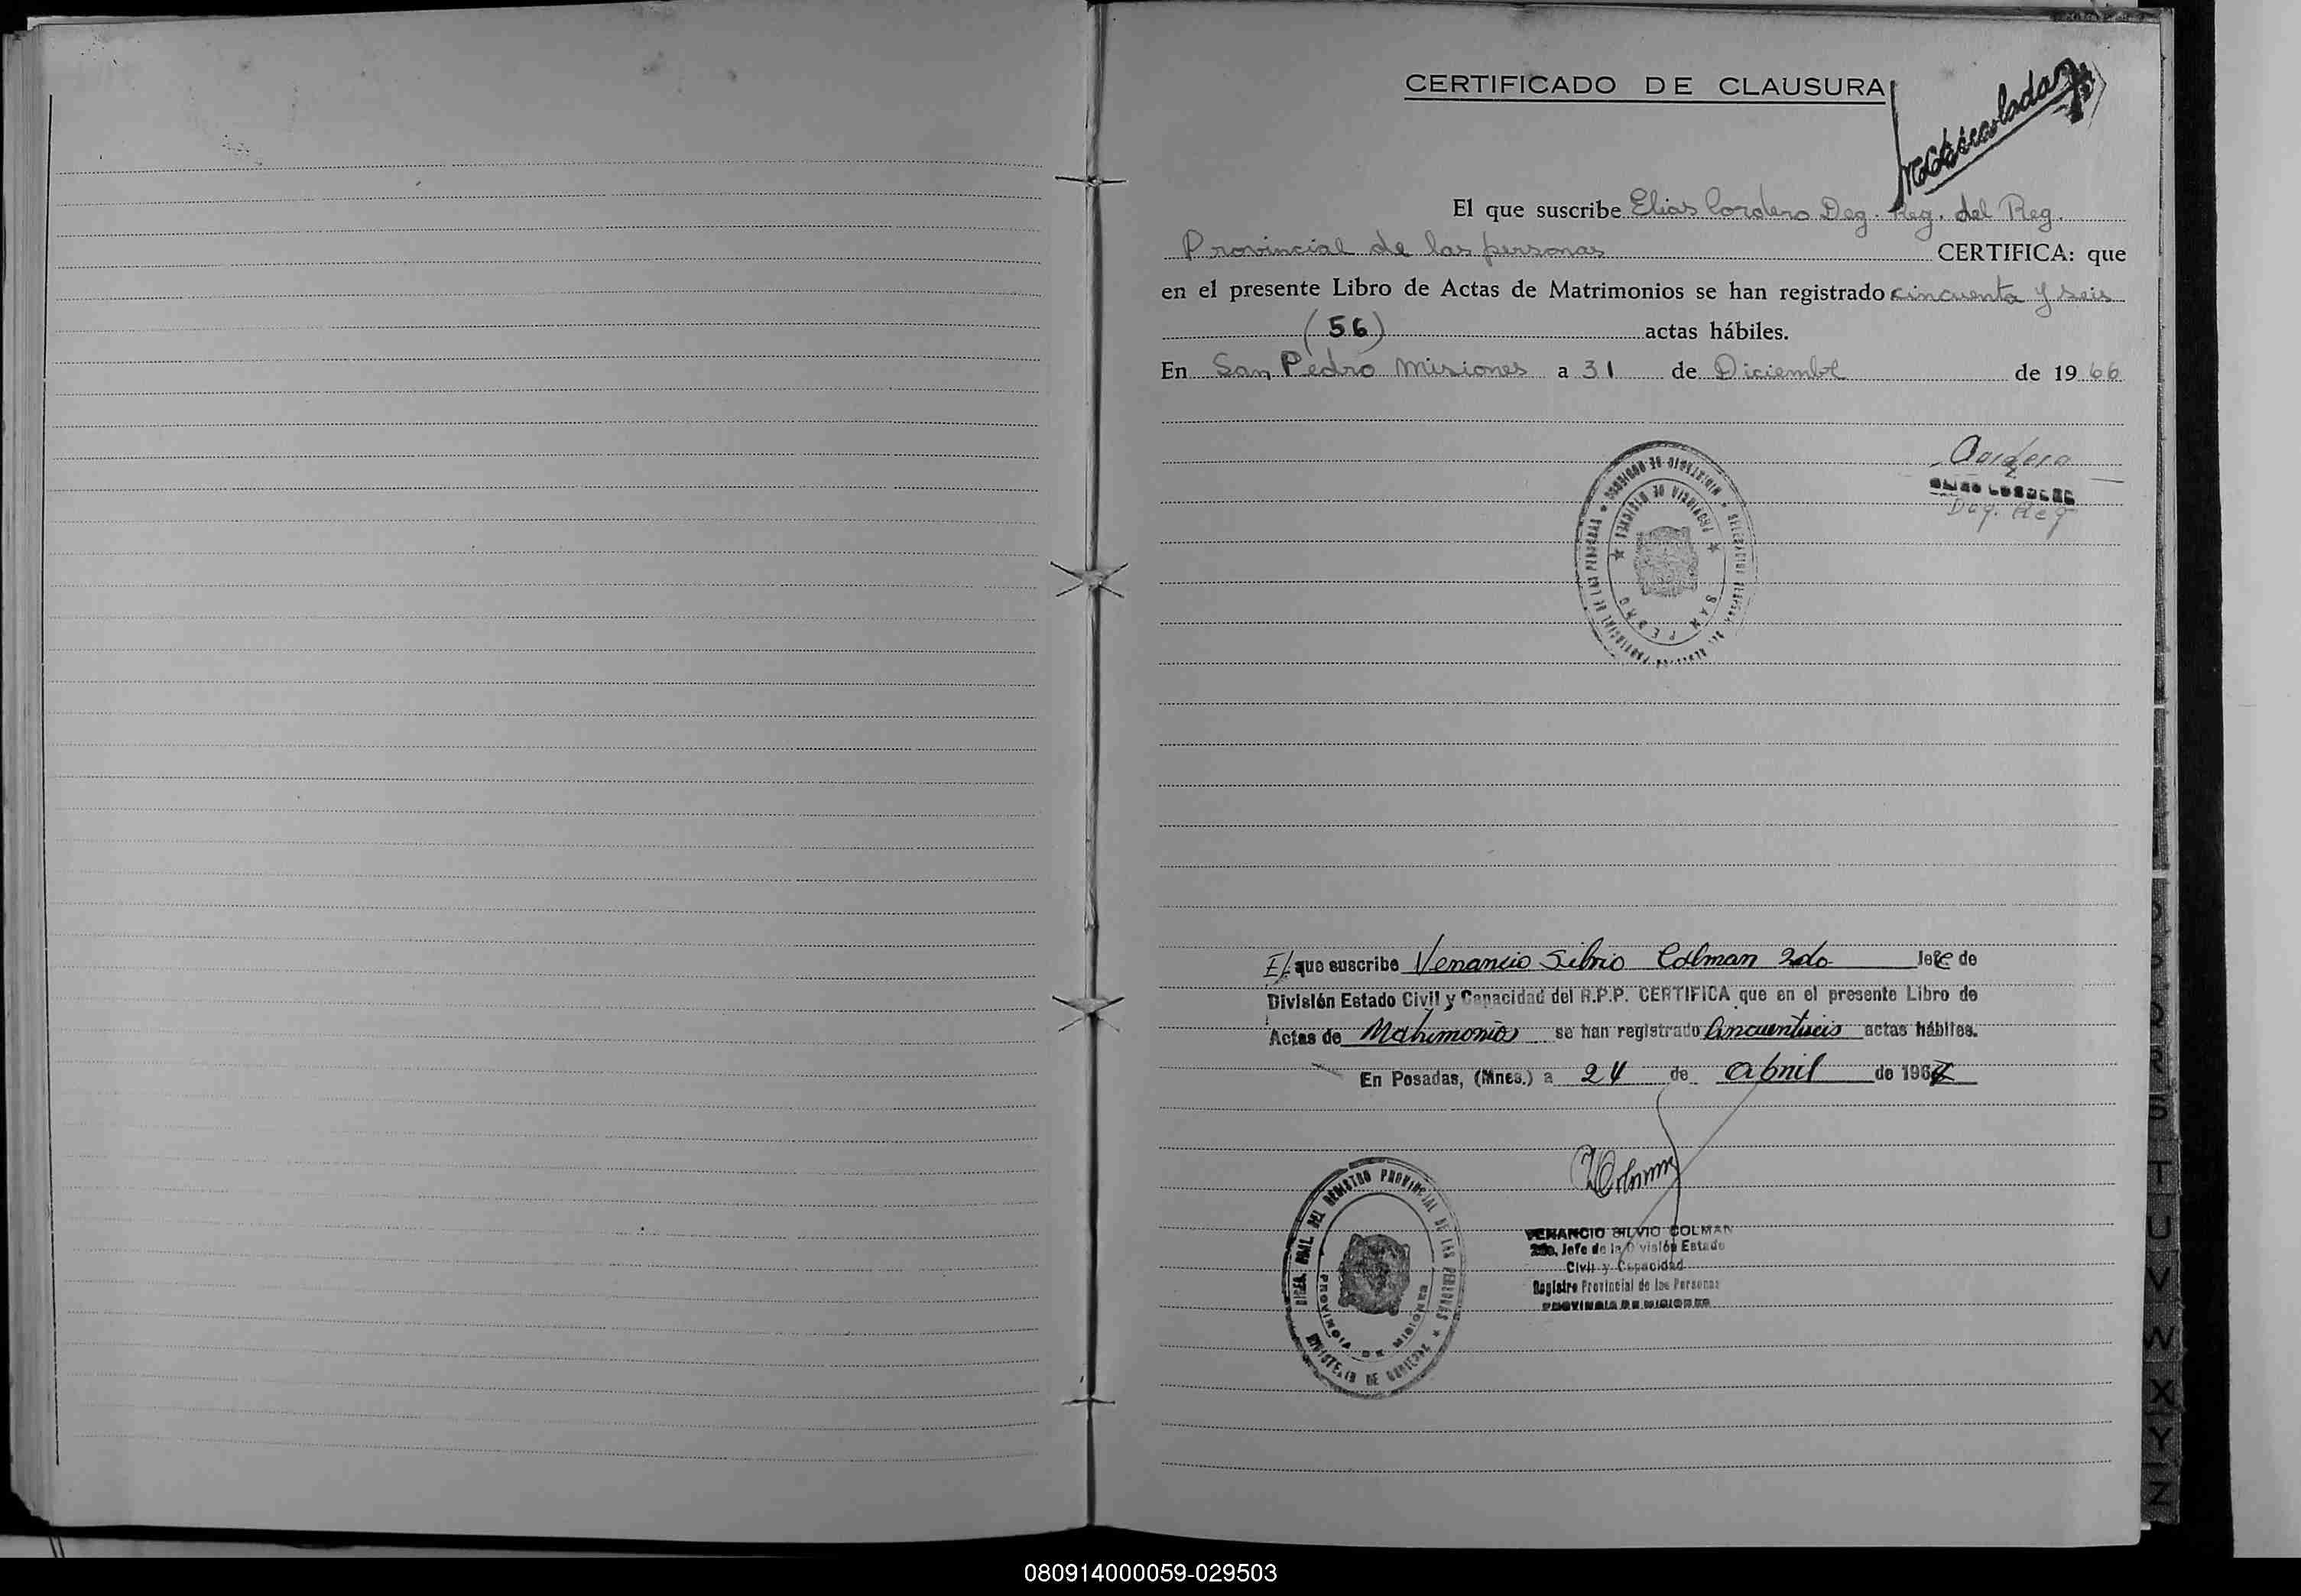 CERTIFICADO DE CLAUSURA
El que suscribe Elias Cordero Deg. Reg. del Reg.
Provincial de las personas CERTIFICA: que
en el presente Libro de Actas de Matrimonios se han registrado cincuenta y seis
(56) actas hábiles.
En San Pedro Misiones a 31 de Diciembre de 1966
Cordero
Deg. Reg
MINISTERIO DE GOBIERNO
PROVINCIA DE MISIONES
SAN PEDRO
El que suscribe Venancio Silvio Colman 2do Jefe de
División Estado Civil y Capacidad del R.P.P. CERTIFICA que en el presente Libro de
Actas de Matrimonios se han registrado Cincuentiseis actas hábiles.
En Posadas, (Mnes.) a 24 de abril de 1967
VColman
VENANCIO SILVIO COLMAN
2do. Jefe de la División Estado
Civil y Capacidad
Registro Provincial de las Personas
PROVINCIA DE MISIONES
DIREC. GRAL. DEL REGISTRO PROVINCIAL DE LAS PERSONAS
MINISTERIO DE GOBIERNO
PROVINCIA DE MISIONES
R
S
T
U
V
W
X
Y
Z
080914000059-029503